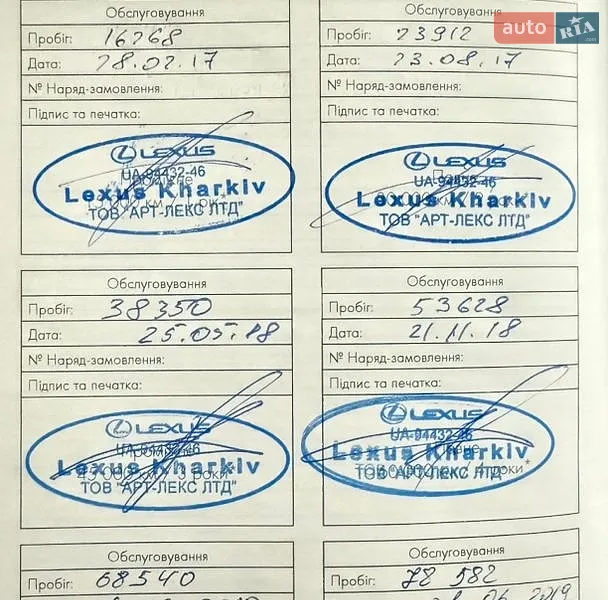 auto RIA
Обслуговування
Пробіг: 16768
Дата: 28.02.17
№ Наряд-замовлення:
Підпис та печатка:
LEXUS
UA-94432-46
Lexus Kharkiv
ТОВ "АРТ-ЛЕКС ЛТД"
Обслуговування
Пробіг: 23912
Дата: 23.08.17
№ Наряд-замовлення:
Підпис та печатка:
LEXUS
UA-94432-46
Lexus Kharkiv
ТОВ "АРТ-ЛЕКС ЛТД"
Обслуговування
Пробіг: 38350
Дата: 25.05.18
№ Наряд-замовлення:
Підпис та печатка:
LEXUS
UA-94432-46
Lexus Kharkiv
45 000 км / 3 роки
ТОВ "АРТ-ЛЕКС ЛТД"
Обслуговування
Пробіг: 53628
Дата: 21.11.18
№ Наряд-замовлення:
Підпис та печатка:
LEXUS
UA-94432-46
Lexus Kharkiv
ТОВ "АРТ-ЛЕКС ЛТД"
Обслуговування
Пробіг: 68540
Обслуговування
Пробіг: 78 582
06 2019